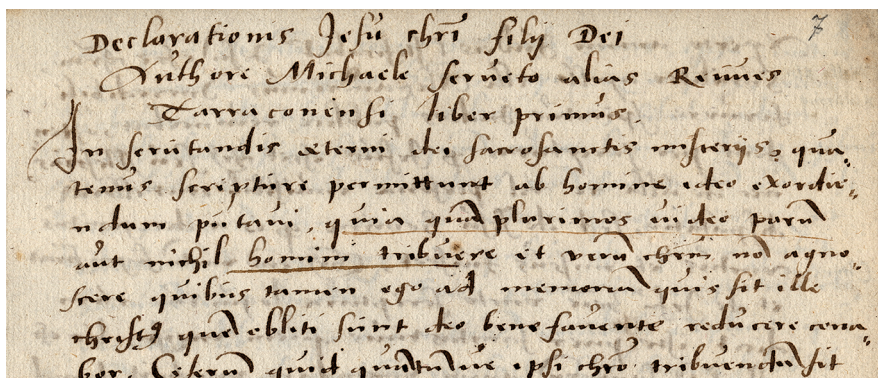 7
Declarationis Jesu chrī filij Dei
Authore Michaele serveto alias Revves
Tarraconensi liber primus.
In scrutandis æterni dei sacrosanctis misterijs, qua-
tenus scripture permittunt ab homine ideo exordie-
ndum putavi, quia quā plurimos video parū
aut nichil homini tribuere et verū chrm̄ nō agno-
scere quibus tamen ego ad memoriā quis sit ille
christꝰ quē obliti sunt deo bene favente reducere cona-
bor. Ceterū quid quātūve ipsi chrō tribuendū sit